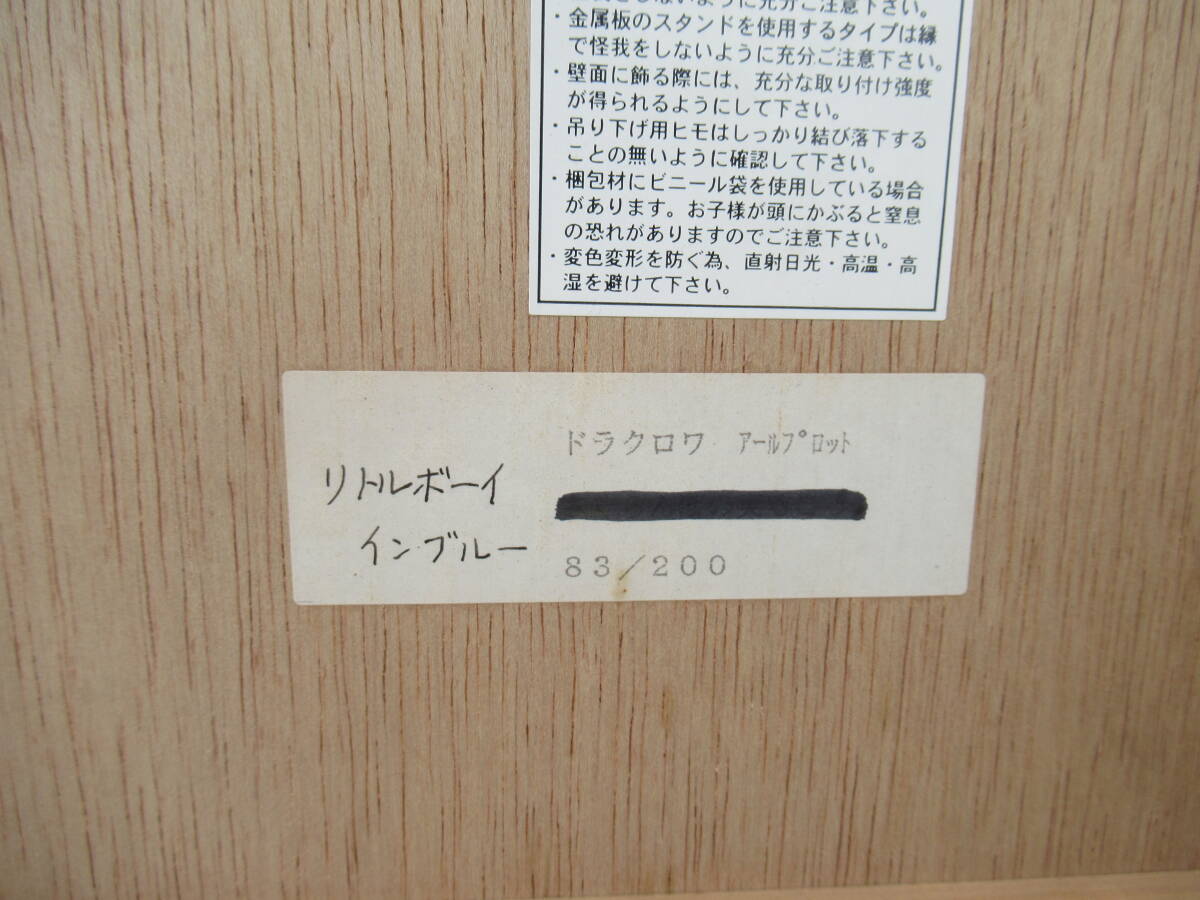 ・金属板のスタンドを使用するタイプは縁
で怪我をしないように充分ご注意下さい。
・壁面に飾る際には、充分な取り付け強度
が得られるようにして下さい。
・吊り下げ用ヒモはしっかり結び落下する
ことの無いように確認して下さい。
・梱包材にビニール袋を使用している場合
があります。お子様が頭にかぶると窒息
の恐れがありますのでご注意下さい。
・変色変形を防ぐ為、直射日光・高温・高
湿を避けて下さい。
ドラクロワ アールプロット
リトルボーイ
インブルー
83/200